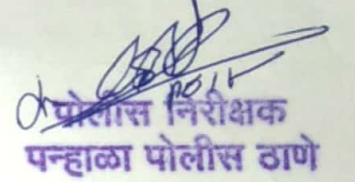 पोलीस निरीक्षक
पन्हाळा पोलीस ठाणे